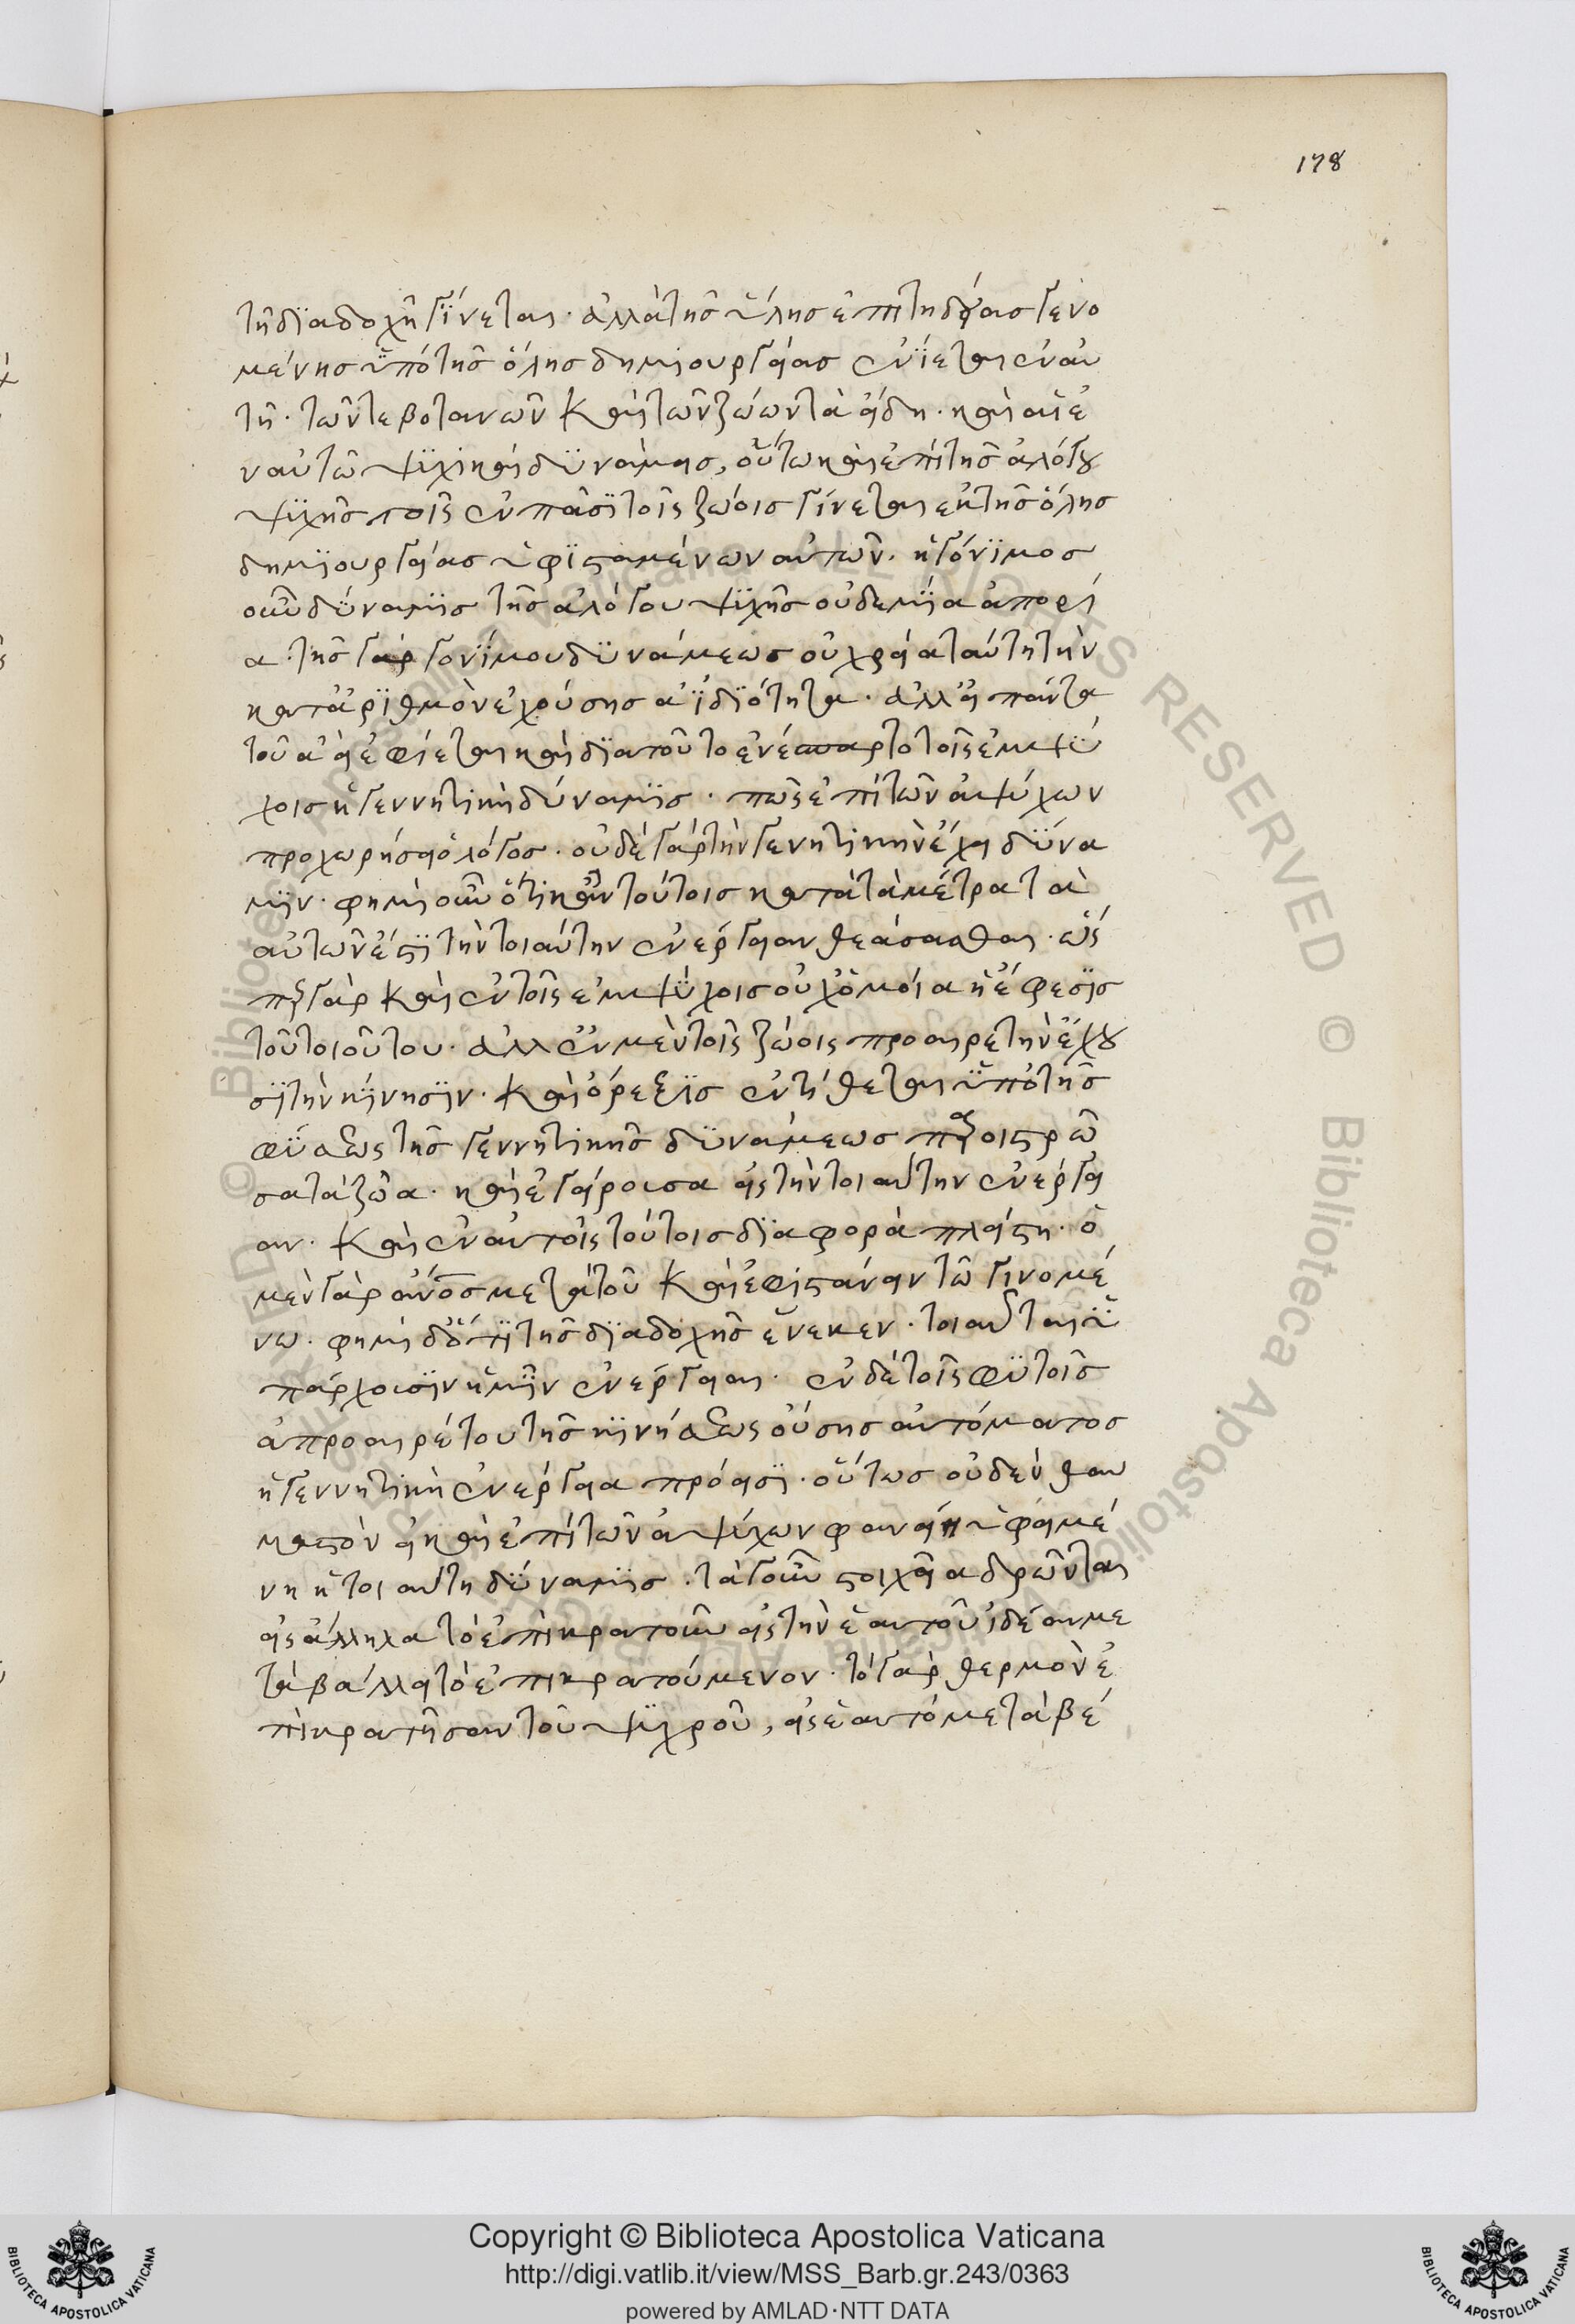 178
τῆ διαδοχῆ γίνεται· ἀλλὰ τῆς ὕλης ἐπιτηδείας γενο
μένης ὑπὸ τῆς ὅλης δημιουργίας ἐνίεται ἐν αὐ
τῆ· τῶν τε βοτανῶν καὶ τῶν ζώων τὰ εἴδη· καὶ αἱ ἐ
ν αὐτῶ ψυχικαὶ δυνάμεις, οὕτω καὶ ἐπὶ τῆς ἀλόγου
ψυχῆς τοῖς ἐν πᾶσι τοῖς ζώοις γίνεται ἐκ τῆς ὅλης
δημιουργίας ὑφισταμένων αὐτῶν· ἡ γόνιμος
οὖν δύναμις τῆς ἀλόγου ψυχῆς οὐδεμία ἀπορί
α· τῆς γὰρ γονίμου δυνάμεως οὐ χρεία ταύτη τὴν
κατ' ἀριθμὸν ἐχούσης ἀϊδιότητα· ἀλλ' εἰ πάντα
τοῦ ἀεὶ ἐφίεται καὶ διὰ τοῦτο ἐνέσπαρτο τοῖς ἐμψύ
χοις ἡ γεννητικὴ δύναμις· πῶς ἐπὶ τῶν ἀψύχων
προχωρήσει ὁ λόγος· οὐδὲ γὰρ τὴν γενητικὴν ἔχει δύνα
μιν· φημὶ οὖν ὅτι κἂν τούτοις κατὰ τὰ μέτρα τὰ
αὐτῶν ἐστὶ τὴν τοιαύτην ἐνέργειαν θεάσασθαι· ὥς
περ γὰρ καὶ ἐν τοῖς ἐμψύχοις οὐχ ὁμοία ἡ ἔφεσις
τοῦ τοιούτου· ἀλλ' ἐν μὲν τοῖς ζώοις προαιρετὴν ἔχου
σι τὴν κίνησιν· καὶ ὄρεξις ἐντίθεται ὑπὸ τῆς
φύσεως τῆς γεννητικῆς δυνάμεως παροιστρῶ
σα τὰ ζῶα· καὶ ἐγείρουσα εἰς τὴν τοιαύτην ἐνέργει
αν· καὶ ἐν αὐτοῖς τούτοις διαφορὰ πλείστη· ὁ
μὲν γὰρ ἄνος μετὰ τοῦ καὶ ἐφιστάνειν τῶ γινομέ
νω· φημὶ δὲ ὅτι τῆς διαδοχῆς ἕνεκεν· τοιαῦται ὑ
πάρχουσιν ἡμῖν ἐνέργειαι· ἐν δὲ τοῖς φυτοῖς
ἀπροαιρέτου τῆς κινήσεως οὔσης αὐτόματος
ἡ γεννητικὴ ἐνέργεια πρόεισι· οὕτως οὐδὲν θαυ
μαστὸν εἰ καὶ ἐπὶ τῶν ἀψύχων φανείη ὑφειμέ
νη ἡ τοιαύτη δύναμις· τὰ γοῦν στοιχεῖα δρῶντα
εἰς ἄλληλα τὸ ἐπικρατοῦν εἰς τὴν ἑαυτοῦ ἰδέαν με
ταβάλλει τὸ ἐπικρατούμενον· τὸ γὰρ θερμὸν ἐ
πικρατῆσαν τοῦ ψυχροῦ, εἰς ἑαυτὸ μεταβέ
Copyright © Biblioteca Apostolica Vaticana
http://digi.vatlib.it/view/MSS_Barb.gr.243/0363
powered by AMLAD·NTT DATA